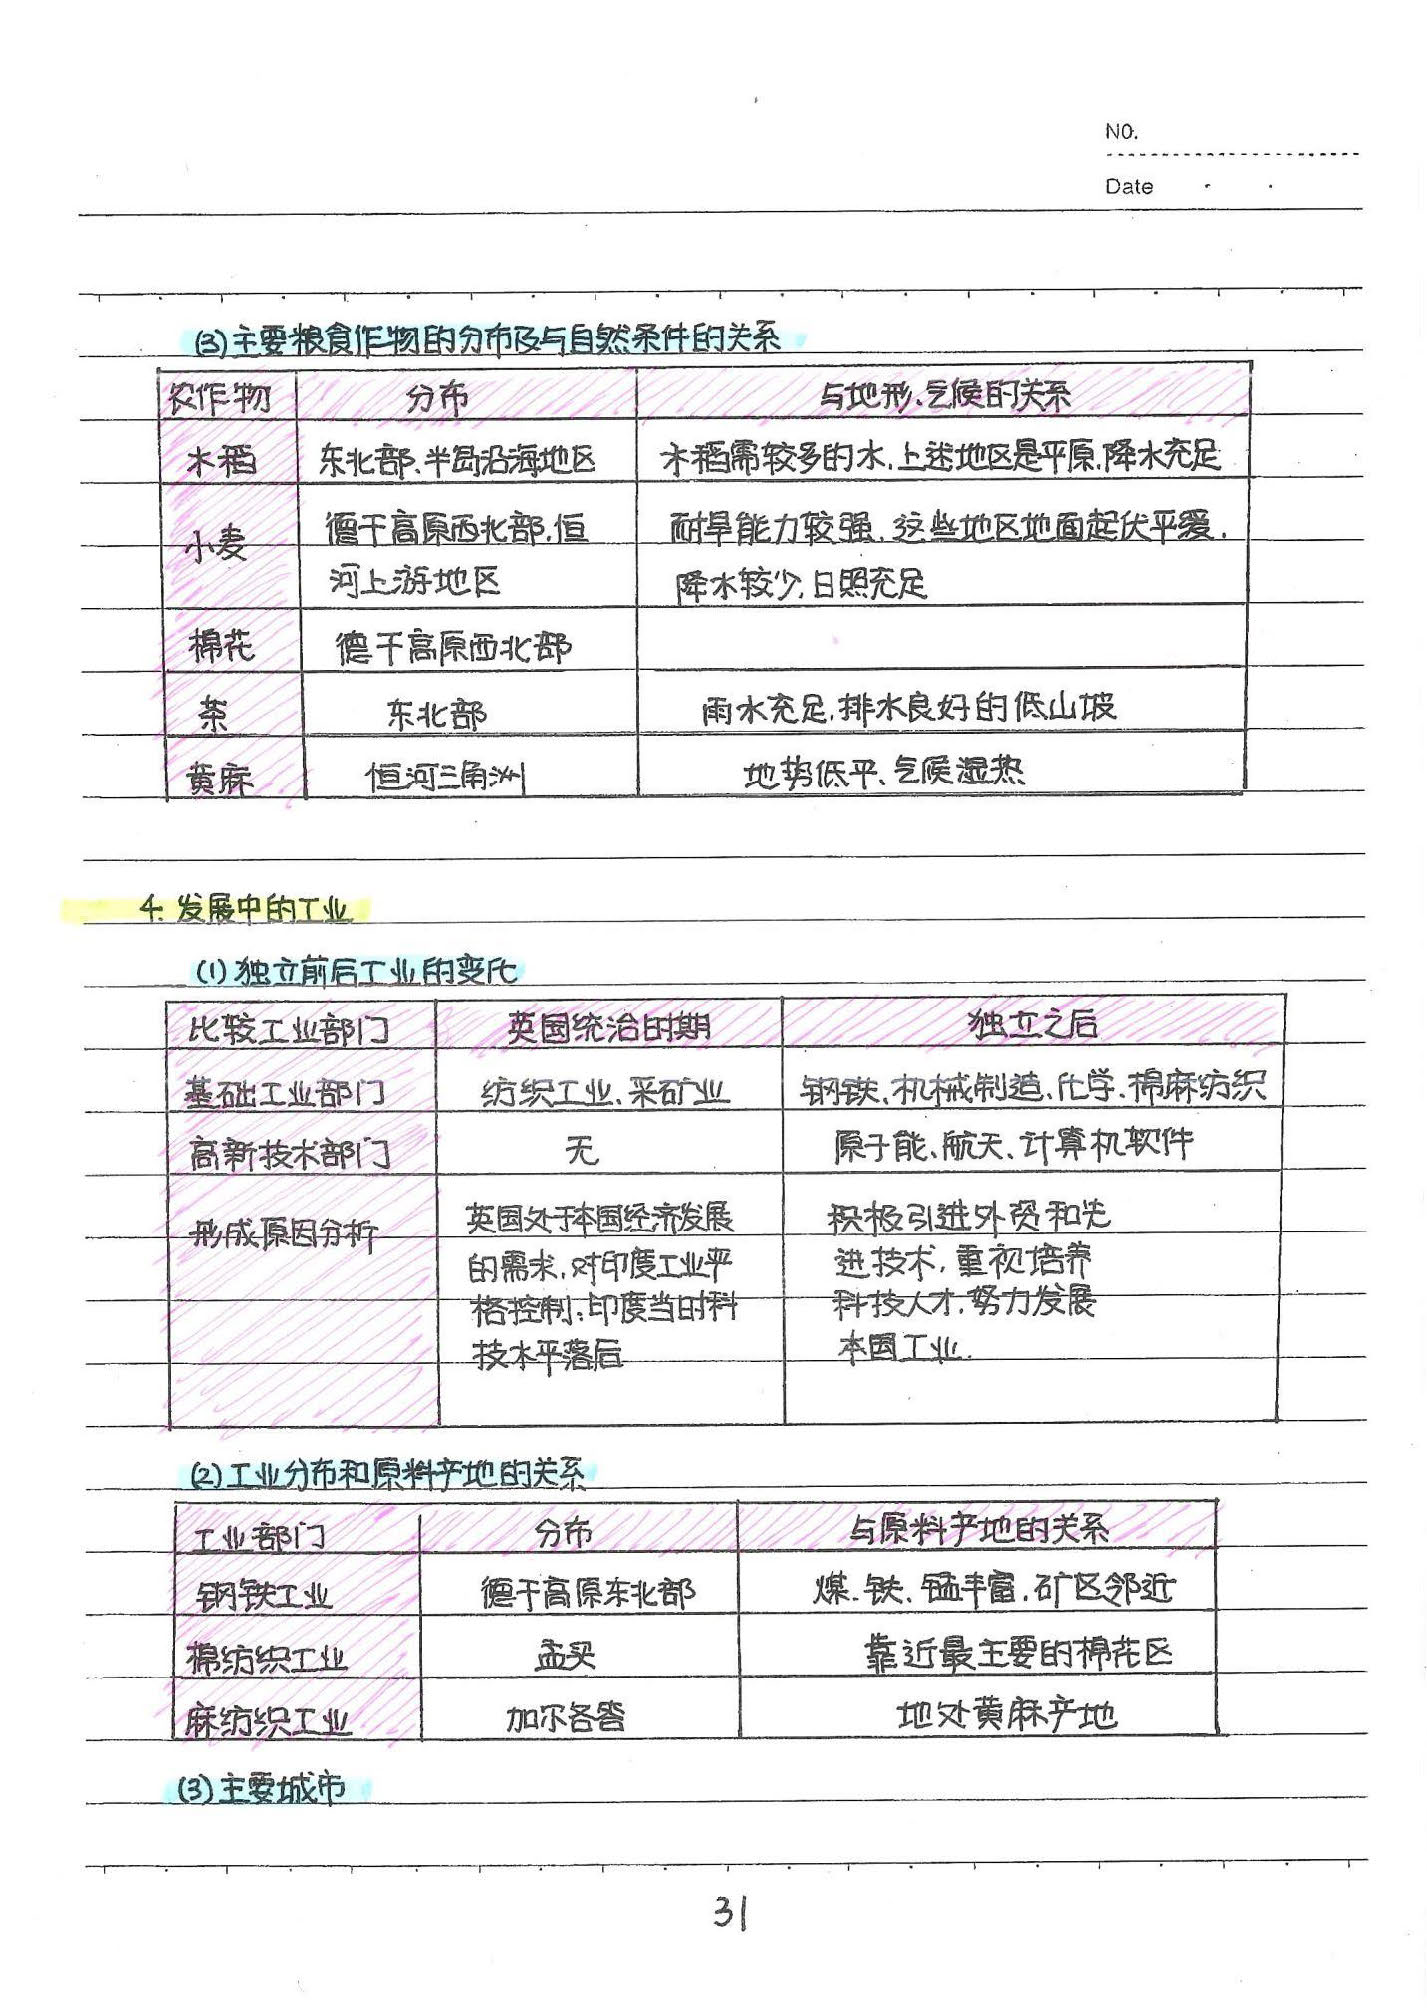 NO.
Date
(3)主要粮食作物的分布及与自然条件的关系
农作物 分布 与地形、气候的关系
水稻 东北部、半岛沿海地区 水稻需较多的水,上述地区是平原,降水充足
小麦 德干高原西北部,恒 耐旱能力较强,这些地区地面起伏平缓,
河上游地区 降水较少,日照充足
棉花 德干高原西北部
茶 东北部 雨水充足,排水良好的低山坡
黄麻 恒河三角洲 地势低平、气候湿热
4. 发展中的工业
(1)独立前后工业的变化
比较工业部门 英国统治时期 独立之后
基础工业部门 纺织工业、采矿业 钢铁、机械制造、化学、棉麻纺织
高新技术部门 无 原子能、航天、计算机软件
形成原因分析 英国处于本国经济发展 积极引进外资和先
的需求,对印度工业严 进技术,重视培养
格控制;印度当时科 科技人才,努力发展
技水平落后 本国工业.
(2)工业分布和原料产地的关系
工业部门 分布 与原料产地的关系
钢铁工业 德干高原东北部 煤、铁、锰丰富,矿区邻近
棉纺织工业 孟买 靠近最主要的棉花区
麻纺织工业 加尔各答 地处黄麻产地
(3)主要城市
31